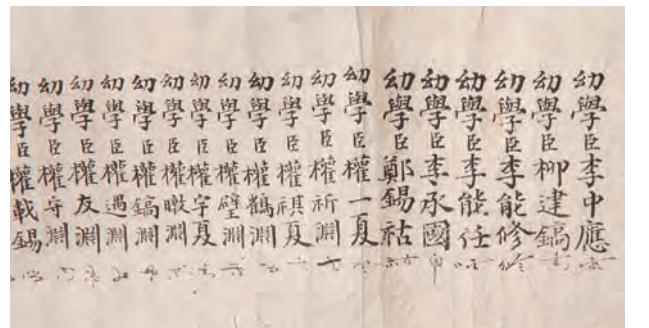 幼學臣李中應
幼學臣柳建鎬
幼學臣李能修
幼學臣李能任
幼學臣李承國
幼學臣鄭錫祜
幼學臣權一夏
幼學臣權祈淵
幼學臣權祺夏
幼學臣權鶴淵
幼學臣權璧淵
幼學臣權宇夏
幼學臣權淵
幼學臣權鎬淵
幼學臣權遇淵
幼學臣權友淵
幼學臣權淵
幼學臣權載錫